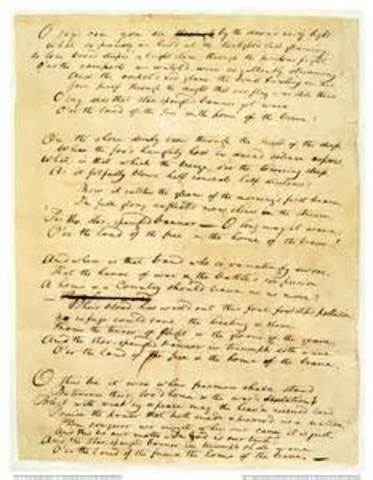 O say can you see by the dawn's early light
What so proudly we hail'd at the twilight's last gleaming,
Whose broad stripes & bright stars through the perilous fight
O'er the ramparts we watch'd, were so gallantly streaming?
And the rocket's red glare, the bomb bursting in air,
Gave proof through the night that our flag was still there
O say does that star-spangled banner yet wave
O'er the land of the free & the home of the brave?
On the shore dimly seen through the mists of the deep,
Where the foe's haughty host in dread silence reposes,
What is that which the breeze, o'er the towering steep,
As it fitfully blows, half conceals, half discloses?
Now it catches the gleam of the morning's first beam,
In full glory reflected now shines in the stream,
'Tis the star-spangled banner — O long may it wave
O'er the land of the free & the home of the brave!
And where is that band who so vauntingly swore,
That the havoc of war & the battle's confusion
A home & a Country should leave us no more?
Their blood has wash'd out their foul footstep's pollution.
No refuge could save the hireling & slave
From the terror of flight or the gloom of the grave,
And the star-spangled banner in triumph doth wave
O'er the land of the free & the home of the brave.
O thus be it ever when freemen shall stand
Between their lov'd home & the war's desolation!
Blest with vict'ry & peace may the heav'n rescued land
Praise the power that hath made & preserv'd us a nation!
Then conquer we must, when our cause it is just,
And this be our motto — In God is our trust
And the star-spangled banner in triumph shall wave
O'er the land of the free & the home of the brave. —